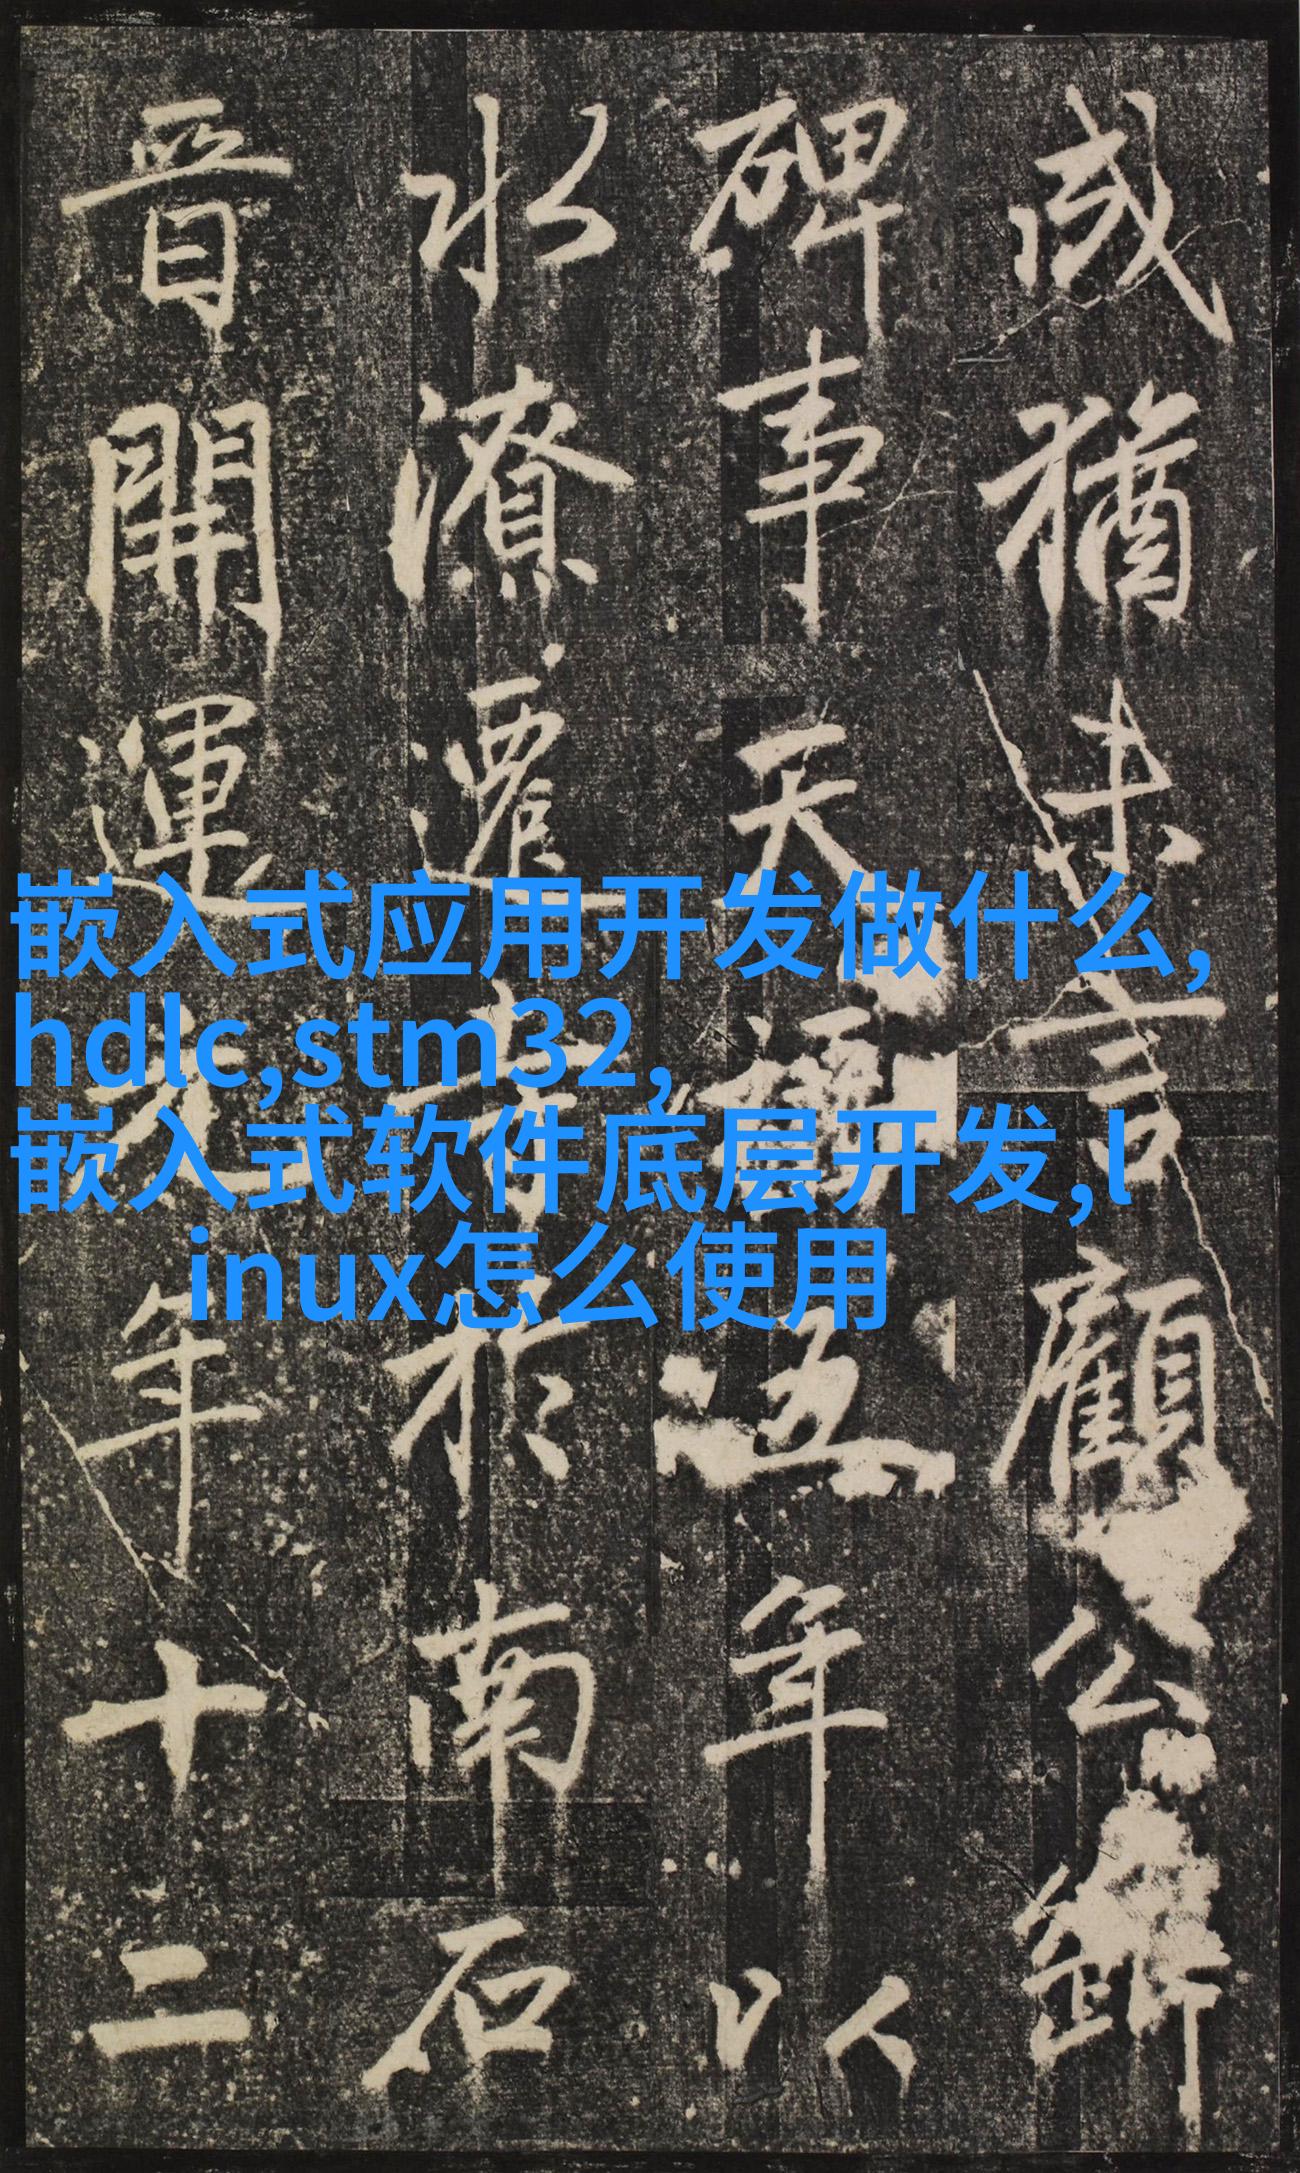 或猶未言顧公
碑事天禧五年以
水潦遷於南石
晉開運元年十二
嵌入式应用开发做什么,
hdlc,stm32,
嵌入式软件底层开发,l
inux怎么使用